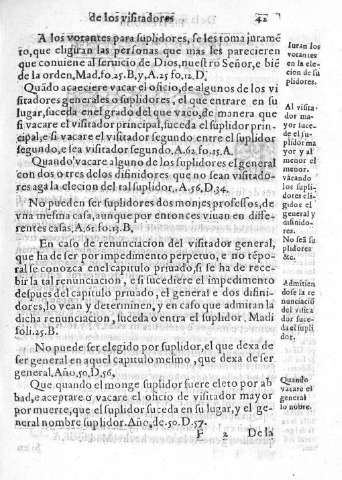 de los visitadores 42
A los votantes para suplidores, se les toma jurame
to, que eligiran las personas que mas les parecieren
que conuiene al seruicio de Dios, nuestro Señor, e bié
de la orden, Mad. fo. 25. B, y, A. 25 fo, 12. D.
Iuran los
votantes
en la ele-
cion de su
plidores.
Quádo acaeciere vacar el oficio, de algunos de los vi
sitadores generales o suplidores, el que entrare en su
lugar, suceda en el grado del que vaco, de manera que
si vacare el visitador principal, suceda el suplidor prin-
cipal, e si vacare el visitador segundo entre el suplidor
segundo, e sea visitador segundo, A. 62. fo. 15. A.
Quando vacare alguno de los suplidores el general
con dos o tres de los difinidores que no sean visitado-
res aga la elecion del tal suplidor, A. 56, D, 34.
Al visita-
dor ma-
yor suce-
de el su-
plidor ma
yor y al
menor el
menor.
vàcando
los supli-
dores eli-
gidos el
general y
difinido-
res.
No pueden ser suplidores dos monjes professos, de
vna mesma casa, aunque por entonces viuan en diffe-
rentes casas, A. 61. fo. 13. B,
No seã su
plidores
&c
En caso de renunciacion del visitador general,
que ha de ser por impedimento perpetuo, e no tépo-
ral se conozca en el capitulo priuado, si se ha de rece-
bir la tal renunciacion, e si sucediere el impedimento
despues del capitulo priuado, el general e dos difini-
dores, lo vean y determinen, y en caso que admitan la
dicha renunciacion, suceda o entra el suplidor. Madi
foli. 25. B.
Admitien
dose la re
nunciació
del visita
dor suce-
da el supli
dor.
No puede ser elegido por suplidor, el que dexa de
ser general en aquel capitulo mesmo, que dexa de ser
general, Año, 50, D, 56,
Que quando el monge suplidor fuere eleto por ab
bad, e aceptare o vacare el oficio de visitador mayor
por muerte, que el suplidor suceda en su lugar, y el ge-
neral nombre suplidor. Año, de. 50. D. 57.
Quando
vacare el
general
lo nõbre.
F 2 De la